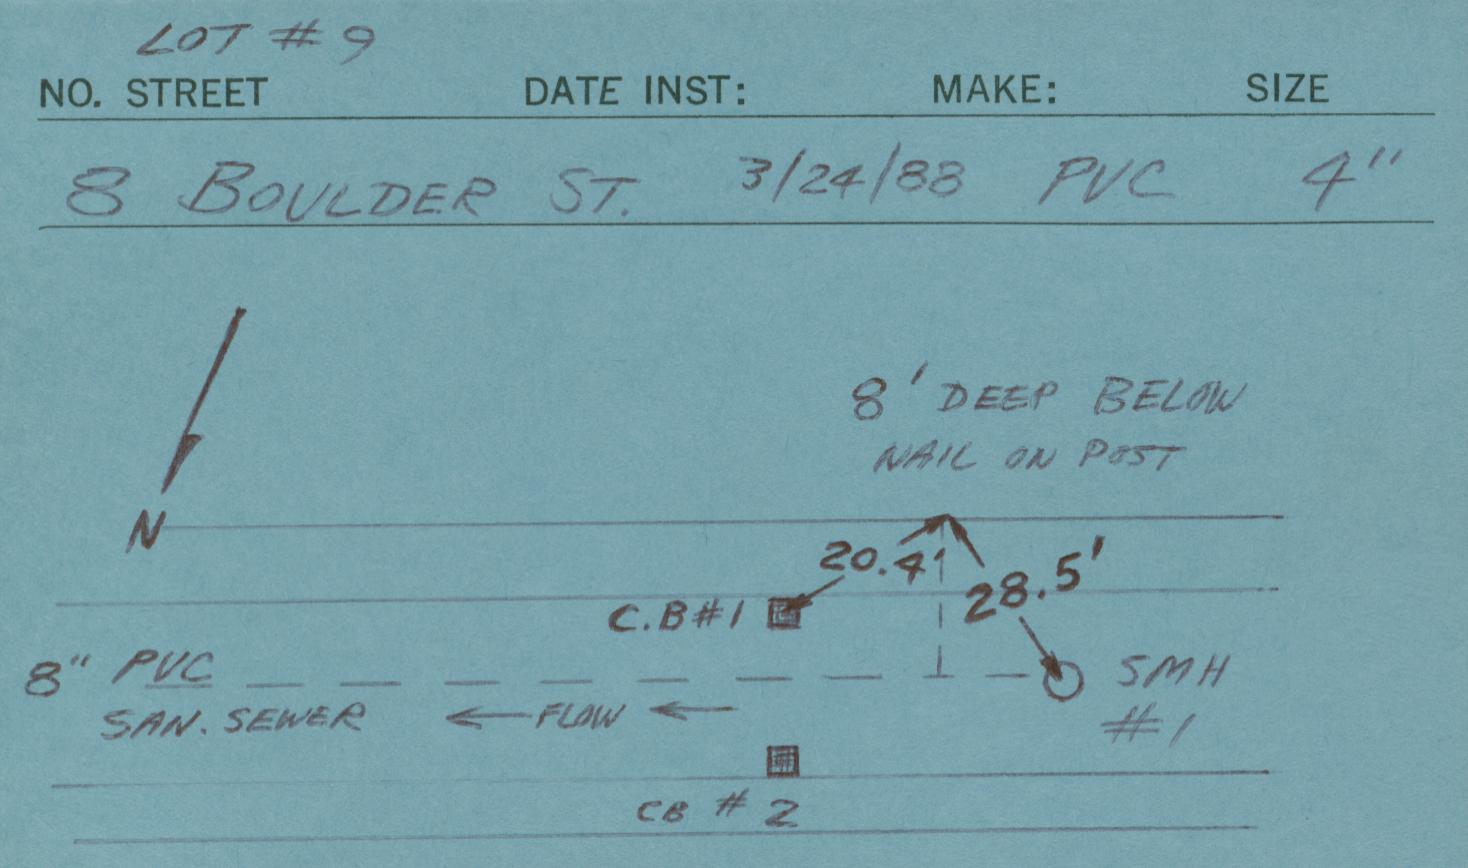 LOT # 9
NO. STREET DATE INST: MAKE: SIZE
8 BOULDER ST. 3/24/88 PVC 4"
8' DEEP BELOW
NAIL ON POST
N
20.4'
28.5'
C.B#1
8" PVC
SMH
#1
SAN. SEWER ← FLOW ←
CB # 2